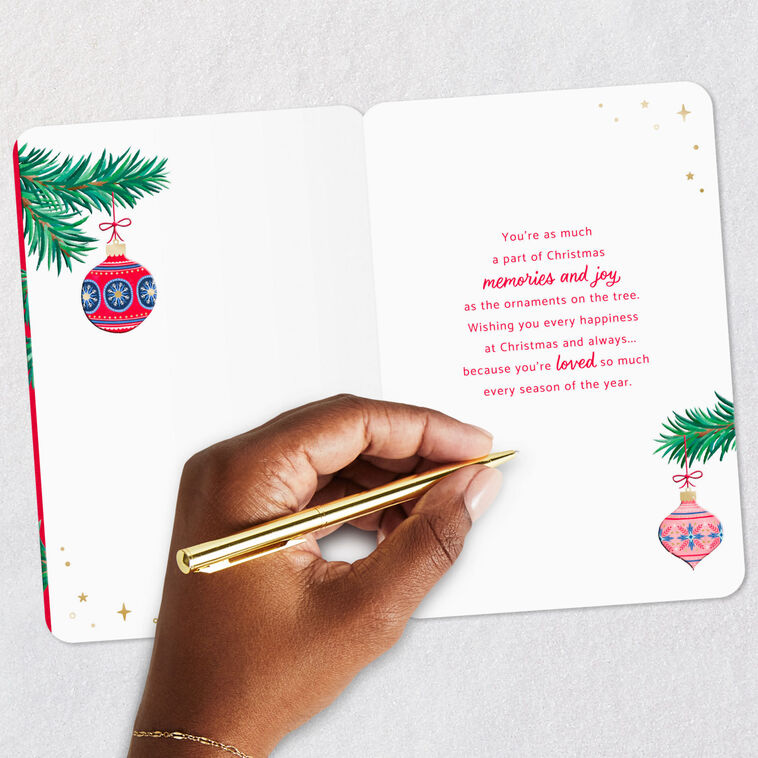 You're as much
a part of Christmas
memories and joy
as the ornaments on the tree.
Wishing you every happiness
at Christmas and always...
because you're loved so much
every season of the year.